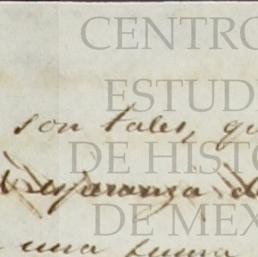 CENTRO
ESTUD
son tales, qu
DE HIST
esperanza de
DE MEX
una